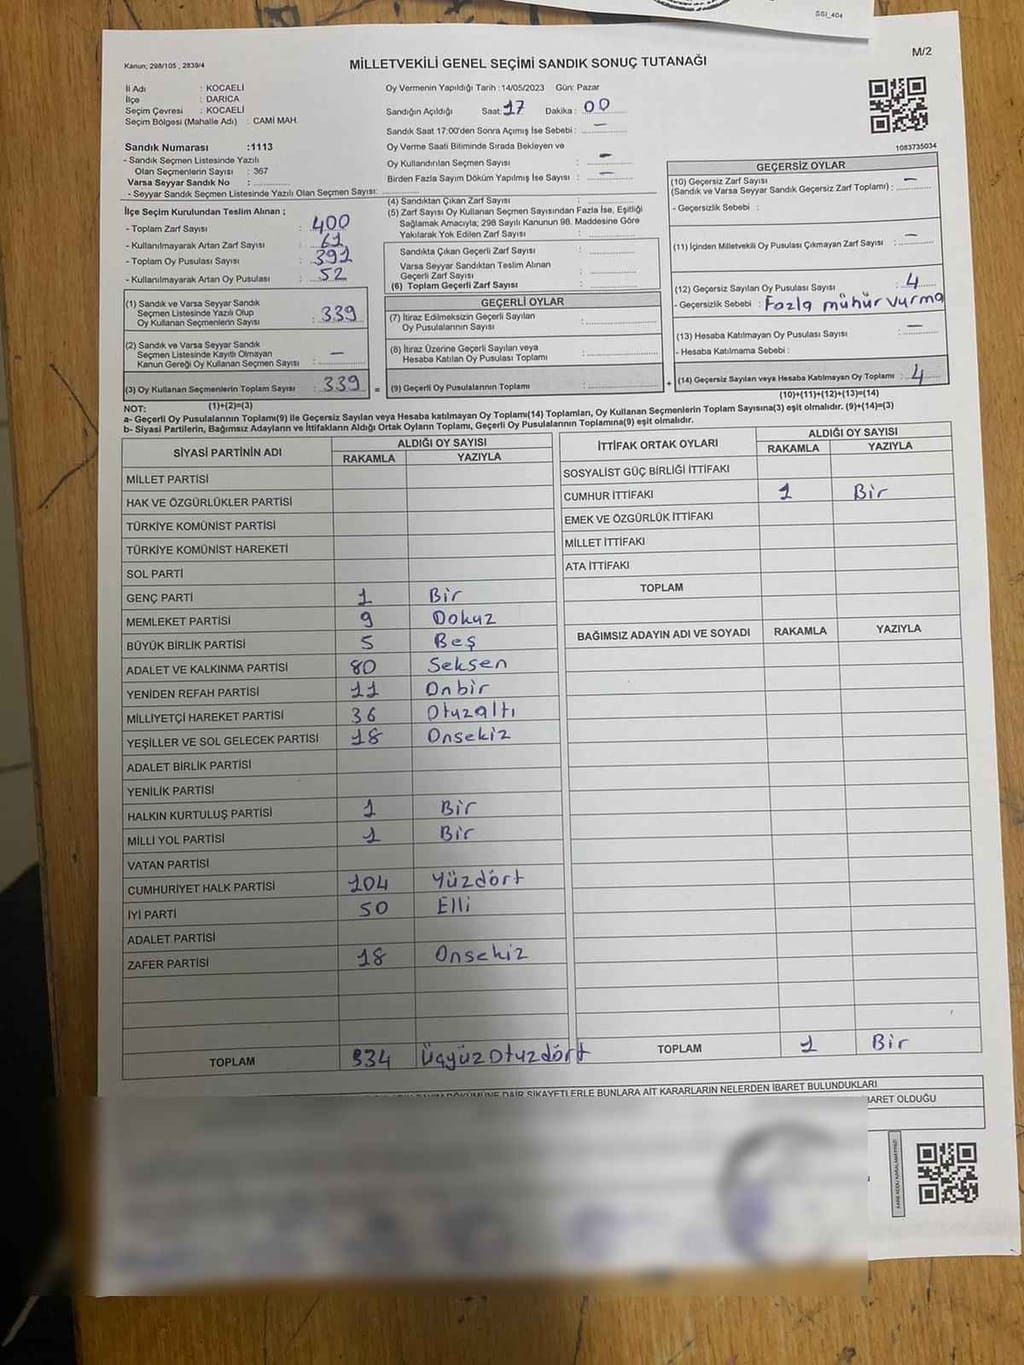 SSI_404
M/2
Kanun; 298/105 , 2839/4
MİLLETVEKİLİ GENEL SEÇİMİ SANDIK SONUÇ TUTANAĞI
İl Adı : KOCAELİ
İlçe : DARICA
Seçim Çevresi : KOCAELİ
Seçim Bölgesi (Mahalle Adı) : CAMİ MAH.
Sandık Numarası :1113
- Sandık Seçmen Listesinde Yazılı
Olan Seçmenlerin Sayısı : 367
Varsa Seyyar Sandık No :
- Seyyar Sandık Seçmen Listesinde Yazılı Olan Seçmen Sayısı:
Oy Vermenin Yapıldığı Tarih :14/05/2023 Gün: Pazar
Sandığın Açıldığı Saat: 17 Dakika : 00
Sandık Saat 17:00'den Sonra Açımış İse Sebebi : —
Oy Verme Saati Bitiminde Sırada Bekleyen ve
Oy Kullandırılan Seçmen Sayısı : —
Birden Fazla Sayım Döküm Yapılmış İse Sayısı : —
1083735034
İlçe Seçim Kurulundan Teslim Alınan ;
- Toplam Zarf Sayısı : 400
- Kullanılmayarak Artan Zarf Sayısı : 61
- Toplam Oy Pusulası Sayısı : 391
- Kullanılmayarak Artan Oy Pusulası : 52
(1) Sandık ve Varsa Seyyar Sandık
Seçmen Listesinde Yazılı Olup
Oy Kullanan Seçmenlerin Sayısı : 339
(2) Sandık ve Varsa Seyyar Sandık
Seçmen Listesinde Kayıtlı Olmayan
Kanun Gereği Oy Kullanan Seçmen Sayısı : —
(3) Oy Kullanan Seçmenlerin Toplam Sayısı : 339 =
(1)+(2)=(3)
(4) Sandıktan Çıkan Zarf Sayısı :
(5) Zarf Sayısı Oy Kullanan Seçmen Sayısından Fazla İse, Eşitliği
Sağlamak Amacıyla; 298 Sayılı Kanunun 98. Maddesine Göre
Yakılarak Yok Edilen Zarf Sayısı :
Sandıkta Çıkan Geçerli Zarf Sayısı :
Varsa Seyyar Sandıktan Teslim Alınan
Geçerli Zarf Sayısı :
(6) Toplam Geçerli Zarf Sayısı :
GEÇERLİ OYLAR
(7) İtiraz Edilmeksizin Geçerli Sayılan
Oy Pusulalarının Sayısı :
(8) İtiraz Üzerine Geçerli Sayılan veya
Hesaba Katılan Oy Pusulası Toplamı :
(9) Geçerli Oy Pusulalarının Toplamı : +
GEÇERSİZ OYLAR
(10) Geçersiz Zarf Sayısı
(Sandık ve Varsa Seyyar Sandık Geçersiz Zarf Toplamı) : —
- Geçersizlik Sebebi :
(11) İçinden Milletvekili Oy Pusulası Çıkmayan Zarf Sayısı : —
(12) Geçersiz Sayılan Oy Pusulası Sayısı : 4
- Geçersizlik Sebebi : Fazla mühür vurma
(13) Hesaba Katılmayan Oy Pusulası Sayısı : —
- Hesaba Katılmama Sebebi :
(14) Geçersiz Sayılan veya Hesaba Katılmayan Oy Toplamı : 4
(10)+(11)+(12)+(13)=(14)
NOT:
a- Geçerli Oy Pusulalarının Toplamı(9) ile Geçersiz Sayılan veya Hesaba katılmayan Oy Toplamı(14) Toplamları, Oy Kullanan Seçmenlerin Toplam Sayısına(3) eşit olmalıdır. (9)+(14)=(3)
b- Siyasi Partilerin, Bağımsız Adayların ve İttifakların Aldığı Ortak Oyların Toplamı, Geçerli Oy Pusulalarının Toplamına(9) eşit olmalıdır.
SİYASİ PARTİNİN ADI ALDIĞI OY SAYISI
RAKAMLA YAZIYLA
MİLLET PARTİSİ
HAK VE ÖZGÜRLÜKLER PARTİSİ
TÜRKİYE KOMÜNİST PARTİSİ
TÜRKİYE KOMÜNİST HAREKETİ
SOL PARTİ
GENÇ PARTİ 1 Bir
MEMLEKET PARTİSİ 9 Dokuz
BÜYÜK BİRLİK PARTİSİ 5 Beş
ADALET VE KALKINMA PARTİSİ 80 Seksen
YENİDEN REFAH PARTİSİ 11 Onbir
MİLLİYETÇİ HAREKET PARTİSİ 36 Otuzaltı
YEŞİLLER VE SOL GELECEK PARTİSİ 18 Onsekiz
ADALET BİRLİK PARTİSİ
YENİLİK PARTİSİ
HALKIN KURTULUŞ PARTİSİ 1 Bir
MİLLİ YOL PARTİSİ 1 Bir
VATAN PARTİSİ
CUMHURİYET HALK PARTİSİ 104 Yüzdört
İYİ PARTİ 50 Elli
ADALET PARTİSİ
ZAFER PARTİSİ 18 Onsekiz
TOPLAM 334 Üçyüz Otuzdört
İTTİFAK ORTAK OYLARI ALDIĞI OY SAYISI
RAKAMLA YAZIYLA
SOSYALİST GÜÇ BİRLİĞİ İTTİFAKI
CUMHUR İTTİFAKI 1 Bir
EMEK VE ÖZGÜRLÜK İTTİFAKI
MİLLET İTTİFAKI
ATA İTTİFAKI
TOPLAM
BAĞIMSIZ ADAYIN ADI VE SOYADI RAKAMLA YAZIYLA
TOPLAM 1 Bir
DÖKÜMÜNE DAİR ŞİKAYETLERLE BUNLARA AİT KARARLARIN NELERDEN İBARET BULUNDUKLARI
İBARET OLDUĞU